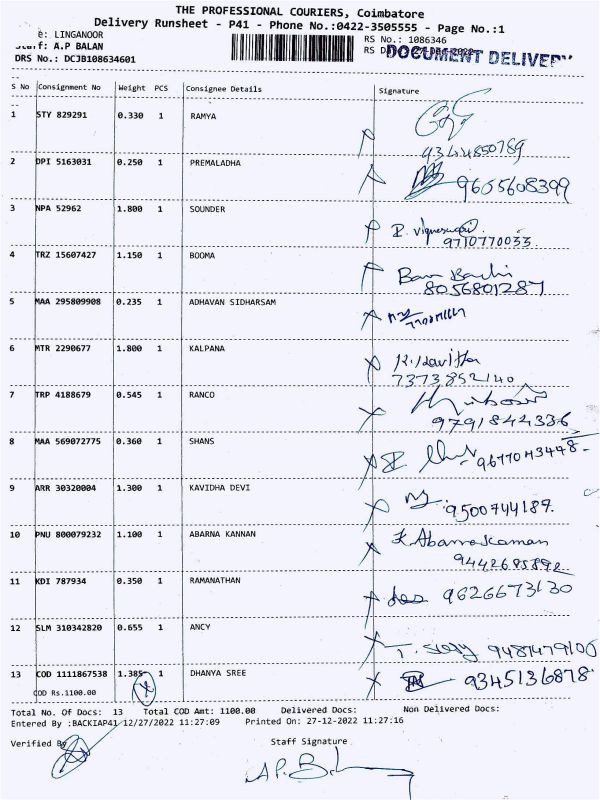 THE PROFESSIONAL COURIERS, Coimbatore
Delivery Runsheet - P41 - Phone No.:0422-3505555 - Page No.:1
e: LINGANOOR
RS No.: 1086346
Staff: A.P BALAN
RS D
DOCUMENT DELIVERY
DRS No.: DCJB108634601
S No Consignment No Weight PCS Consignee Details Signature
1 STY 829291 0.330 1 RAMYA
9344850789
2 DPI 5163031 0.250 1 PREMALADHA 9665608399
3 NPA 52962 1.800 1 SOUNDER
9710770033
4 TRZ 15607427 1.150 1 BOOMA
8056801287
5 MAA 295809908 0.235 1 ADHAVAN SIDHARSAM
6 MTR 2290677 1.800 1 KALPANA K. Kavitha
7373852140
7 TRP 4188679 0.545 1 RANCO
9791844336
8 MAA 569072775 0.360 1 SHANS 9677043448
9 ARR 30320004 1.300 1 KAVIDHA DEVI
9500744187.
10 PNU 800079232 1.100 1 ABARNA KANNAN K. Abarna Kannan
9442685892
11 KDI 787934 0.350 1 RAMANATHAN 9626673130
12 SLM 310342820 0.655 1 ANCY 9487479100
13 COD 1111867538 1.385 1 DHANYA SREE 9345136878
COD Rs.1100.00
Total No. Of Docs: 13 Total COD Amt: 1100.00 Delivered Docs: Non Delivered Docs:
Entered By :BACKIAP41 12/27/2022 11:27:09 Printed On: 27-12-2022 11:27:16
Verified By
Staff Signature
A.P.B